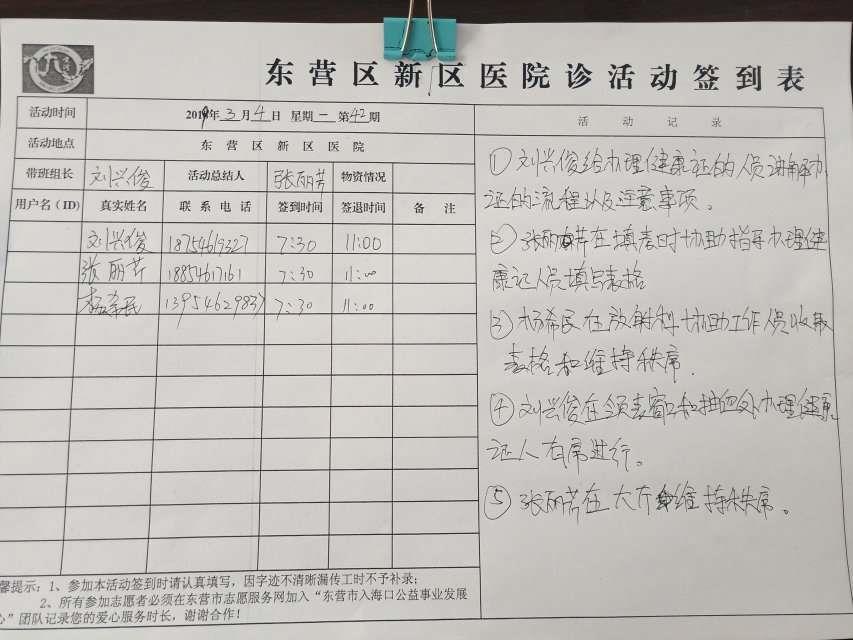 东营区新区医院诊活动签到表
活动时间 2019年3月4日 星期一 第42期
活动地点 东营区新区医院
带班组长 刘兴俊 活动总结人 张丽芳 物资情况
用户名(ID) 真实姓名 联系电话 签到时间 签退时间 备注
刘兴俊 18754619327 7:30 11:00
张丽芹 18854617161 7:30 11:00
杨希民 13954629837 7:30 11:00
活动记录
①刘兴俊给办理健康证的人员讲解办
证的流程以及注意事项。
②张丽芹在填表时协助指导办理健
康证人员填写表格
③杨希民在放射科协助工作人员收取
表格和维持秩序.
④刘兴俊在领表窗口和抽血处办理健康
证人有序进行。
⑤张丽芳在大厅维持秩序。
馨提示:1、参加本活动签到时请认真填写,因字迹不清晰漏传工时不予补录;
2、所有参加志愿者必须在东营市志愿服务网加入“东营市入海口公益事业发展
心”团队记录您的爱心服务时长,谢谢合作!